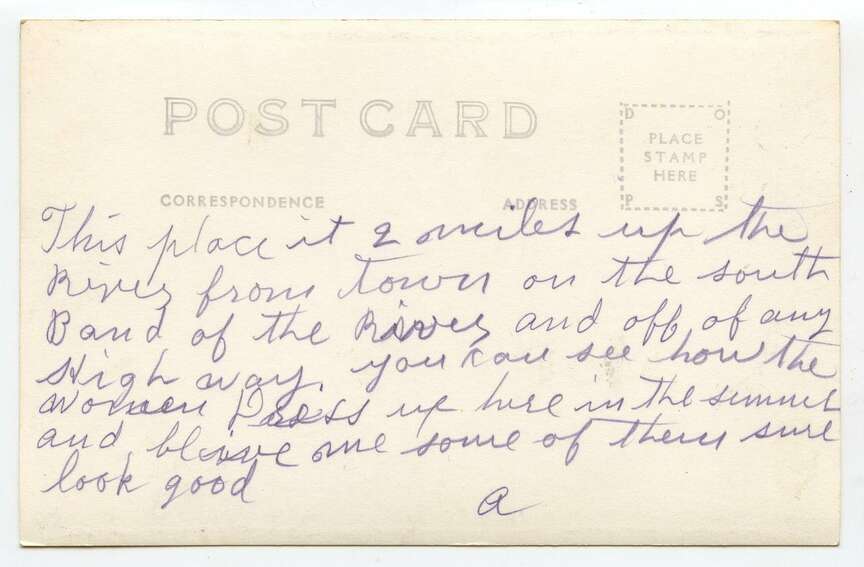 POST CARD
D O
PLACE
STAMP
HERE
P S
CORRESPONDENCE
ADDRESS
This place it 2 miles up the
River from town on the south
Band of the River and off of any
High way. you can see how the
women Dress up here in the summer
and bleive me some of them sure
look good
a